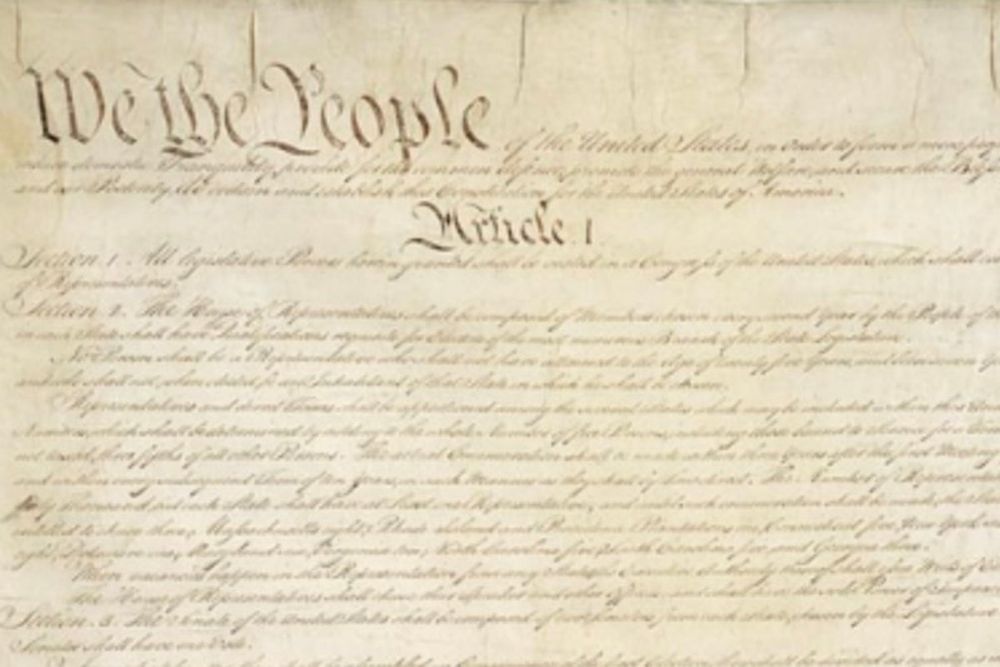 We the People of the United States, in Order to form a more
insure domestic Tranquility, provide for the common defence, promote the general Welfare, and secure the
and our Posterity, do ordain and establish this Constitution for the United States of America.
Article I
Section 1. All legislative Powers herein granted shall be vested in a Congress of the United States, which shall
of Representatives.
Section 2. The House of Representatives shall be composed of Members chosen every second Year by the People of
in each State shall have Qualifications requisite for Electors of the most numerous Branch of the State Legislature.
No Person shall be a Representative who shall not have attained to the Age of twenty five Years, and
and who shall not, when elected, be an Inhabitant of that State in which he shall be chosen.
Representatives and direct Taxes shall be apportioned among the several States which may be included within this
Number, which shall be determined by adding to the whole Number of free Persons, including those bound to Service for a
not taxed, three fifths of all other Persons. The actual Enumeration shall be made within three Years after the first Meeting
and within every subsequent Term of ten Years, in such Manner as they shall by Law direct. The Number of
thirty Thousand, but each State shall have at Least one Representative; and until such enumeration shall be made, the
entitled to chuse three, Massachusetts eight, Rhode Island and Providence Plantations one, Connecticut five, New York
eight, Delaware one, Maryland six, Virginia ten, North Carolina five, South Carolina five, and Georgia three.
When vacancies happen in the Representation from any State, the Executive Authority thereof shall issue Writs of
The House of Representatives shall chuse their Speaker and other Officers; and shall have the sole Power of
Section 3. The Senate of the United States shall be composed of two Senators from each State, chosen by the Legislature
Senator shall have one Vote.